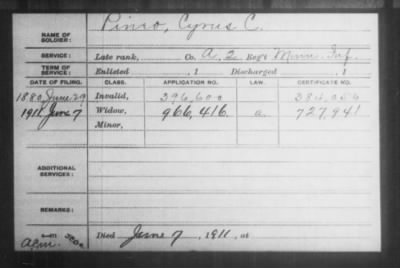 NAME OF SOLDIER: Pinco, Cyrus C.
SERVICE: Late rank, Co. A, 2 Reg't Minn. Inf.
TERM OF SERVICE: Enlisted , 1 Discharged , 1
DATE OF FILING. CLASS. APPLICATION NO. LAW. CERTIFICATE NO.
1880, June 29 Invalid, 396,600
1911 June 7 Widow, 966,416 a. 727,941
Minor,
ADDITIONAL SERVICES:
REMARKS:
Died June 7, 1911, at